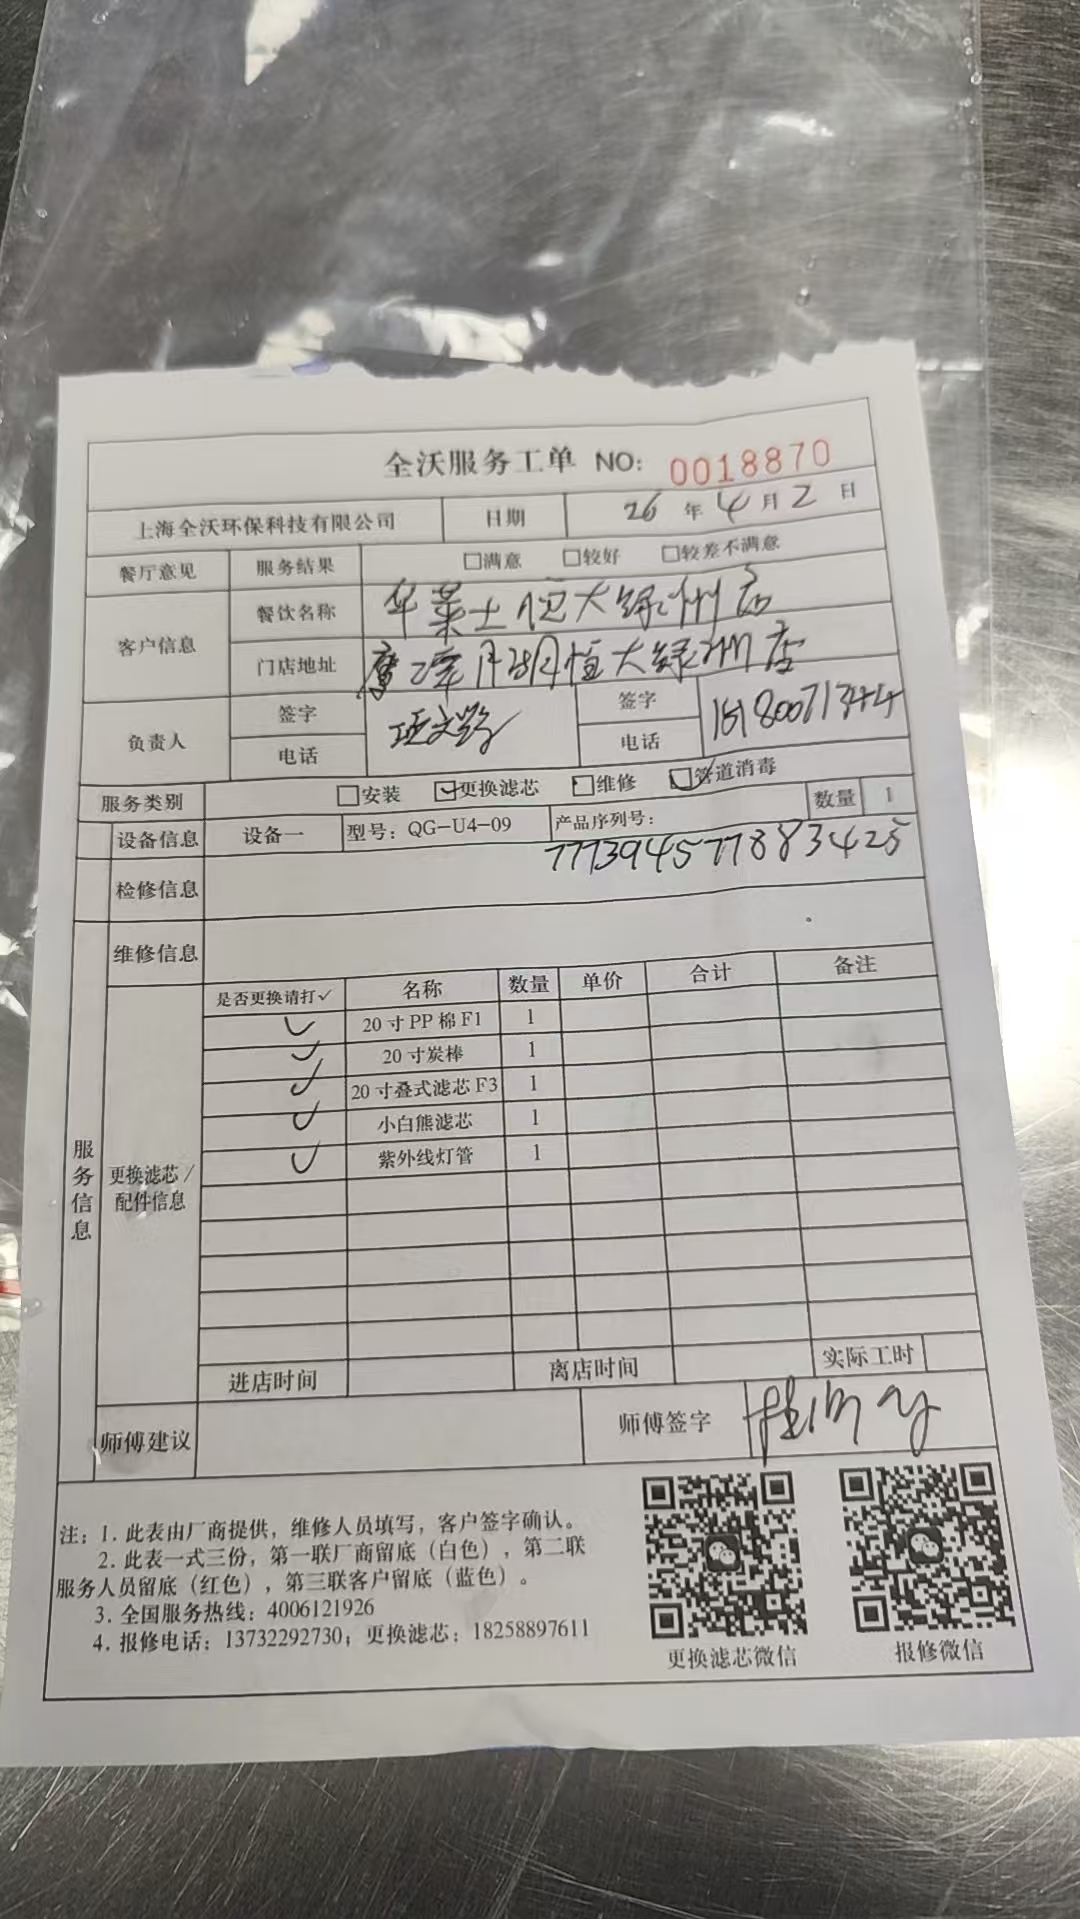 全沃服务工单 NO: 0018870
上海全沃环保科技有限公司 日期 26 年 4 月 2 日
餐厅意见 服务结果 □满意 □较好 □较差不满意
客户信息 餐饮名称 华莱士恒大绿洲店
门店地址 鹰潭月湖恒大绿洲店
负责人 签字 签字
电话 电话 15180071344
服务类别 □安装 ☑更换滤芯 □维修 ☑管道消毒
设备信息 设备一 型号: QG-U4-09 产品序列号: 数量 1
777394577883425
检修信息
维修信息
服务信息
更换滤芯/
配件信息
是否更换请打✓ 名称 数量 单价 合计 备注
✓ 20寸PP棉F1 1
✓ 20寸炭棒 1
✓ 20寸叠式滤芯F3 1
✓ 小白熊滤芯 1
✓ 紫外线灯管 1
进店时间 离店时间 实际工时
师傅建议 师傅签字
注: 1. 此表由厂商提供，维修人员填写，客户签字确认。
2. 此表一式三份，第一联厂商留底（白色），第二联
服务人员留底（红色），第三联客户留底（蓝色）。
3. 全国服务热线: 4006121926
4. 报修电话: 13732292730; 更换滤芯: 18258897611
更换滤芯微信 报修微信